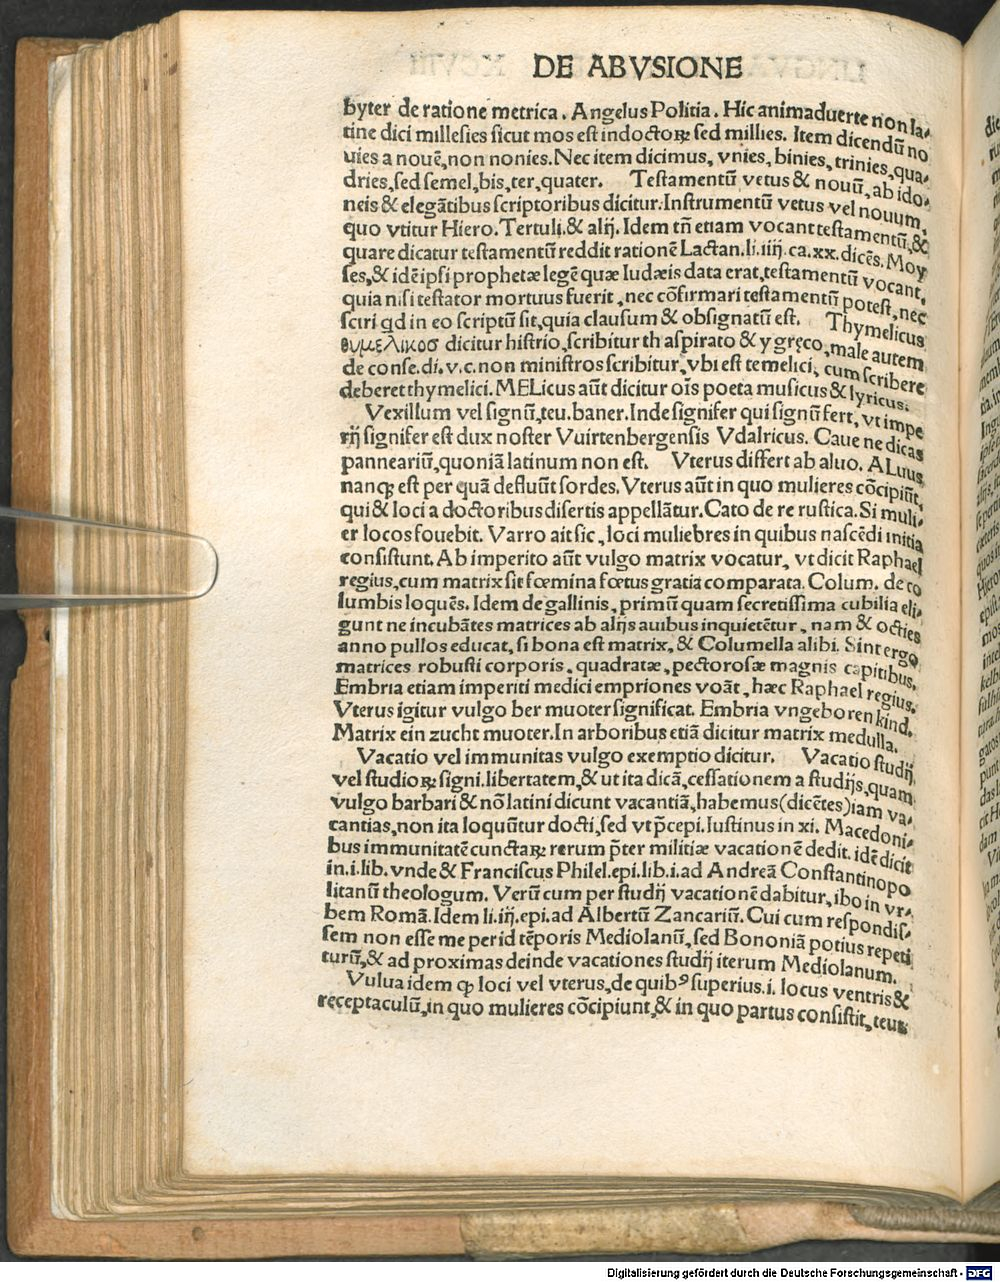 DE ABVSIONE
byter de ratione metrica. Angelus Politia. Hic animaduerte non la-
tine dici millesies sicut mos est indoctoꝝ sed millies. Item dicendũ no
uies a nouẽ, non nonies. Nec item dicimus, vnies, binies, trinies, qua-
dries, sed semel, bis, ter, quater. Testamentũ vetus & nouũ, ab ido-
neis & elegãtibus scriptoribus dicitur. Instrumentũ vetus vel nouum,
quo vtitur Hiero. Tertuli. & alij. Idem tñ etiam vocant testamentũ, &
quare dicatur testamentũ reddit rationẽ Lactan. li. iiij. ca. xx. dicẽs. Moy
ses, & idẽ ipsi prophetæ legẽ quæ Iudæis data erat, testamentũ vocant,
quia nisi testator mortuus fuerit, nec cõfirmari testamentũ potest, nec
sciri qd in eo scriptũ sit, quia clausum & obsignatũ est. Thymelicus
θυμελικοσ dicitur histrio, scribitur th aspirato & y gręco, male autem
de conse. di. v. c. non ministros scribitur, vbi est temelici, cum scribere
deberet thymelici. MELicus aũt dicitur oĩs poeta musicus & lyricus.
Vexillum vel signũ, teu. baner. Inde signifer qui signũ fert, vt impe
rij signifer est dux noster Vuirtenbergensis Vdalricus. Caue ne dicas
panneariũ, quoniã latinum non est. Vterus differt ab aluo. ALuus
nanqꝫ est per quã defluũt sordes. Vterus aũt in quo mulieres cõcipiũt,
qui & loci a doctoribus disertis appellãtur. Cato de re rustica. Si muli-
er locos fouebit. Varro ait sic, loci muliebres in quibus nascẽdi initia
consistunt. Ab imperito aũt vulgo matrix vocatur, vt dicit Raphael
regius, cum matrix sit fœmina fœtus gratia comparata. Colum. de co
lumbis loquẽs. Idem de gallinis, primũ quam secretissima cubilia eli-
gunt ne incubãtes matrices ab alijs auibus inquietẽtur, nam & octies
anno pullos educat, si bona est matrix, & Columella alibi. Sint ergo
matrices robusti corporis, quadratæ, pectorosæ magnis capitibus.
Embria etiam imperiti medici empriones voãt, hæc Raphael regius.
Vterus igitur vulgo ber muoter significat. Embria vngeboren kind.
Matrix ein zucht muoter. In arboribus etiã dicitur matrix medulla.
Vacatio vel immunitas vulgo exemptio dicitur. Vacatio studij
vel studioꝝ signi. libertatem, & ut ita dicã, cessationem a studijs, quam
vulgo barbari & nõ latini dicunt vacantiã, habemus (dicẽtes) iam va-
cantias, non ita loquũtur docti, sed vt p̃cepi. Iustinus in xi. Macedoni-
bus immunitatẽ cunctaꝝ rerum p̃ter militiæ vacationẽ dedit. idẽ dicit
in. i. lib. vnde & Franciscus Philel. epi. lib. i. ad Andreã Constantinopo
litanũ theologum. Verũ cum per studij vacationẽ dabitur, ibo in vr-
bem Romã. Idem li. iij. epi. ad Albertũ Zancariũ. Cui cum respondis-
sem non esse me per id tẽporis Mediolanũ, sed Bononiã potius repeti
turũ, & ad proximas deinde vacationes studij iterum Mediolanum.
Vulua idem qꝫ loci vel vterus, de quibꝰ superius. i. locus ventris &
receptaculũ, in quo mulieres cõcipiunt, & in quo partus consistit, teus
Digitalisierung gefördert durch die Deutsche Forschungsgemeinschaft - DFG